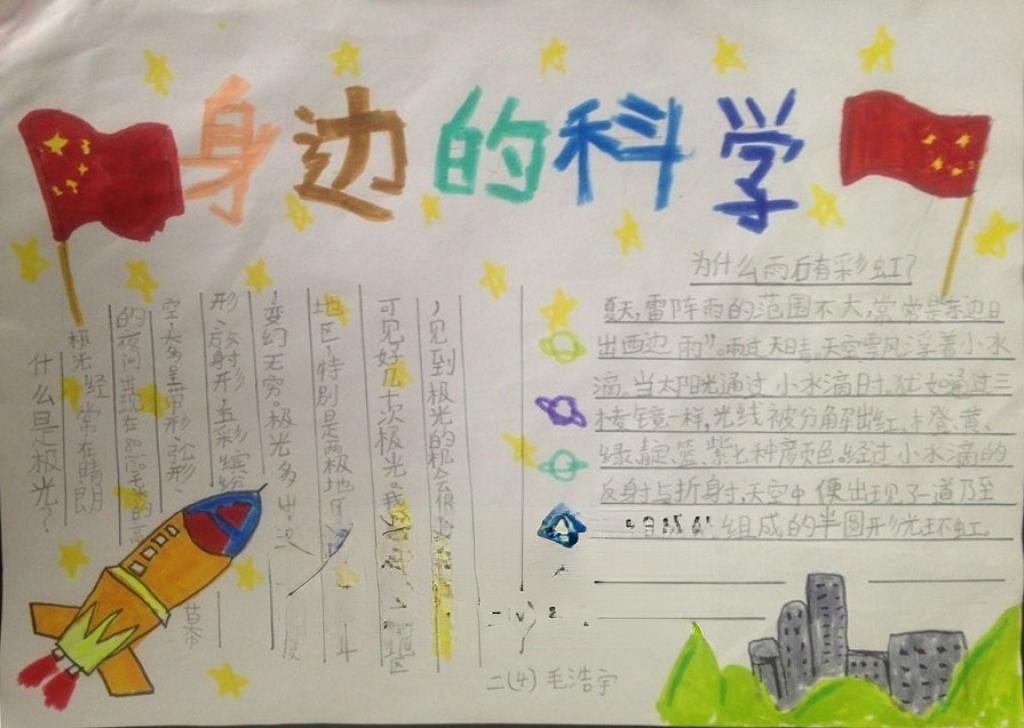 身边的科学
什么是极光?
极光经常在晴朗
的夜间出现在
空,大多呈带形、弧形、
形、放射形,五彩缤纷
变幻无穷。极光多出
地区,特别是两极地区
可见好几十次极光。我
见到极光的机会很
为什么雨后有彩虹?
夏天,雷阵雨的范围不大,常常是东边日
出西边雨”。雨过天晴,天空飘浮着小水
滴。当太阳光通过小水滴时,犹如通过三
棱镜一样,光线被分解出红、橙、黄、
绿、靛、篮、紫七种颜色。经过小水滴的
反射与折射,天空中便出现了一道乃至
组成的半圆形光环虹
二(4) 毛浩宇